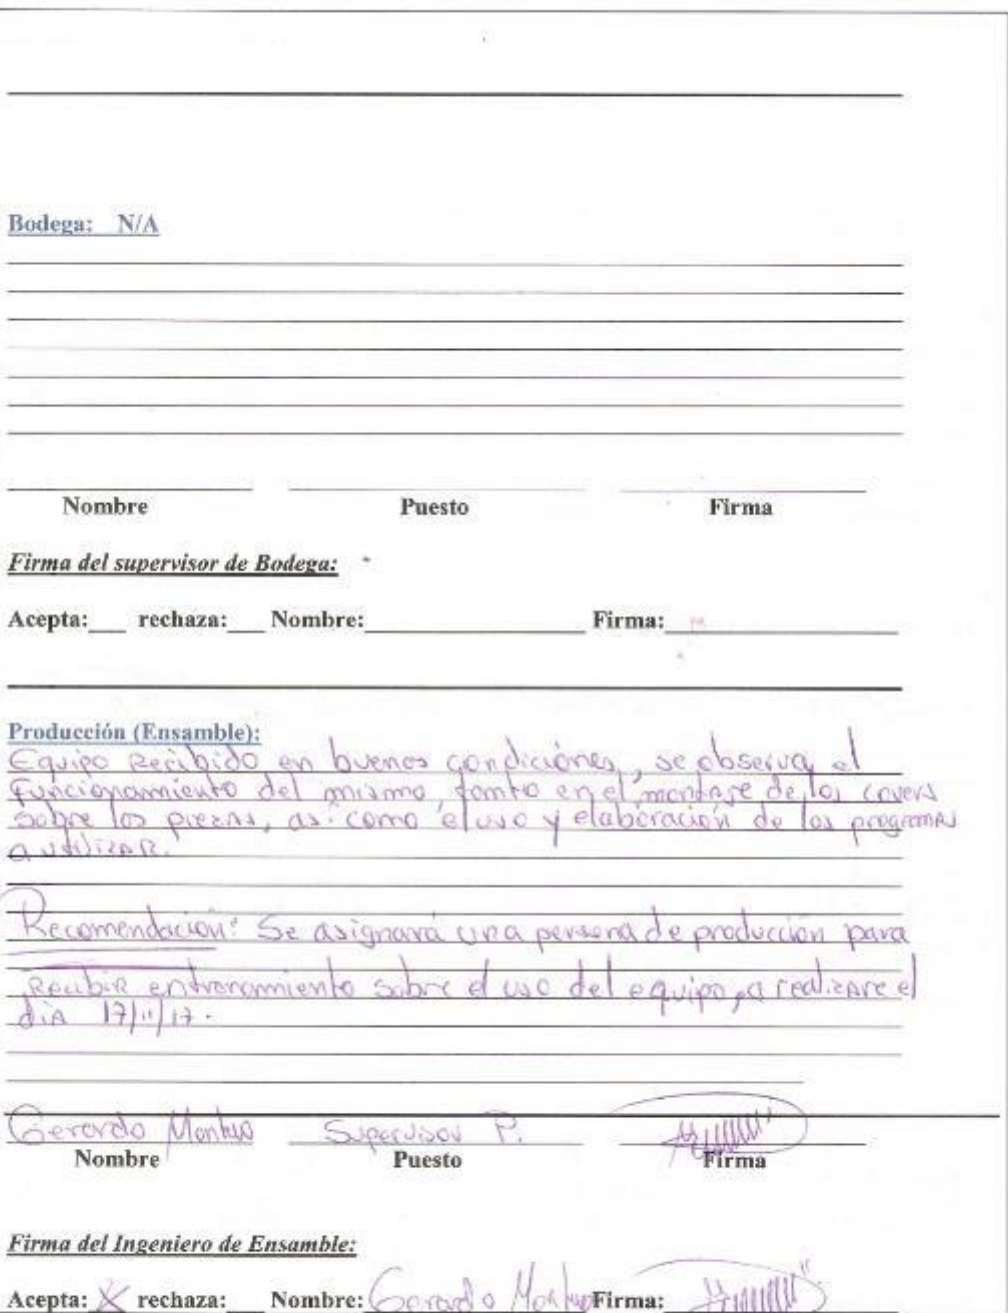 Bodega: N/A
Nombre Puesto Firma
Firma del supervisor de Bodega:
Acepta:___ rechaza:___ Nombre:____________________ Firma:____________________
Producción (Ensamble):
Equipo Recibido en buenas condiciones, se observa el
Funcionamiento del mismo, tanto en el montaje de los covers
sobre las piezas, así como el uso y elaboración de los programas
a utilizar.
Recomendación: Se asignará una persona de producción para
Recibir entrenamiento sobre el uso del equipo, a realizarse el
día 17/11/17.
Gerardo Supervisor P.
Nombre Puesto Firma
Firma del Ingeniero de Ensamble:
Acepta: X rechaza:___ Nombre: Gerardo Firma: